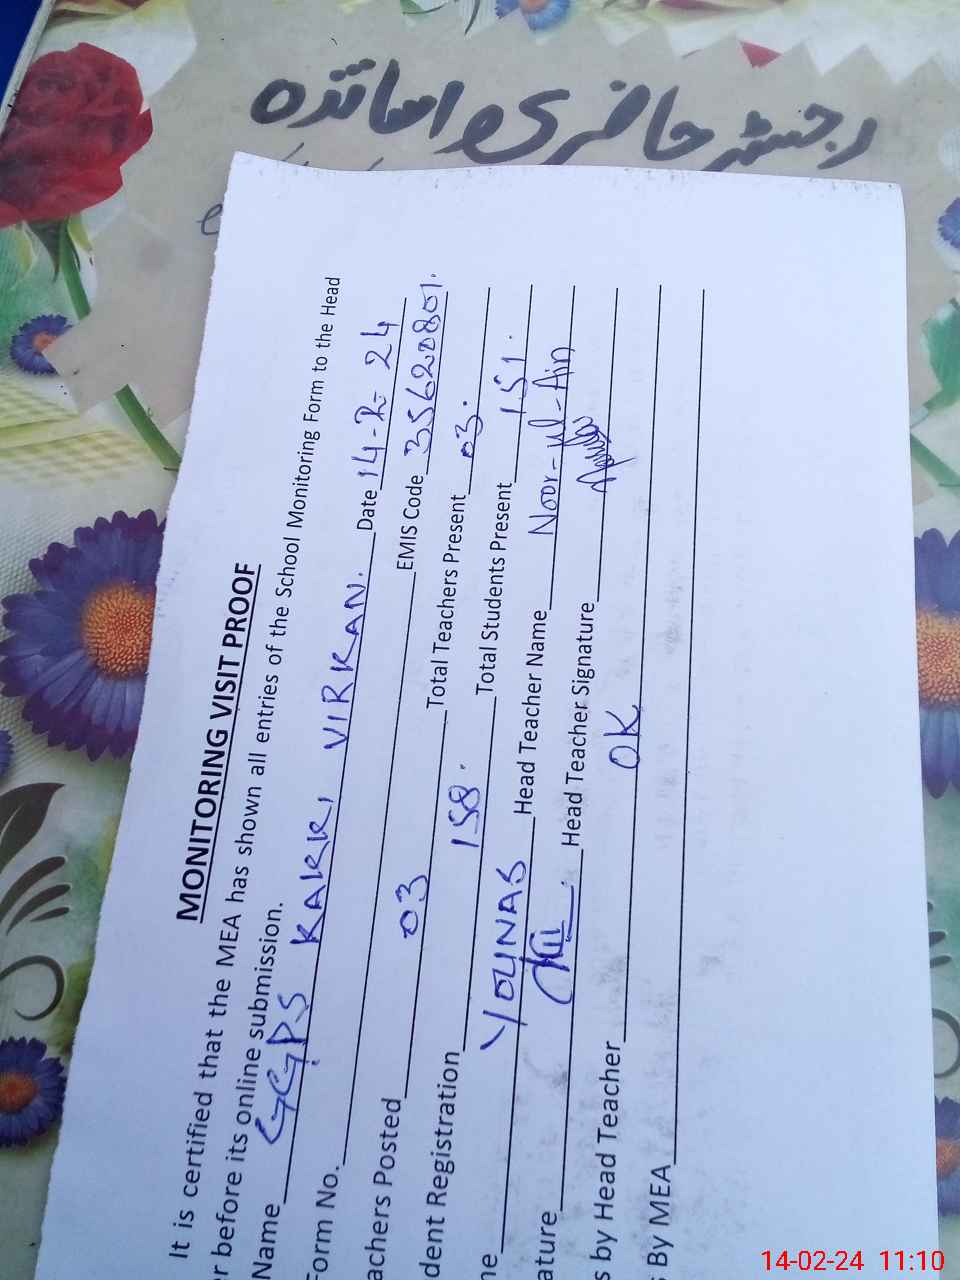 رجسٹر حاضری اساتذہ
MONITORING VISIT PROOF
It is certified that the MEA has shown all entries of the School Monitoring Form to the Head
r before its online submission.
Name GGPS KAKKI VIRKAN. Date 14-2-24
Form No. EMIS Code 35620801.
achers Posted 03 Total Teachers Present 03.
dent Registration 158. Total Students Present 151.
ne YOUNAS Head Teacher Name Noor-ul-Ain
ature Head Teacher Signature
s by Head Teacher OK
s By MEA
14-02-24 11:10